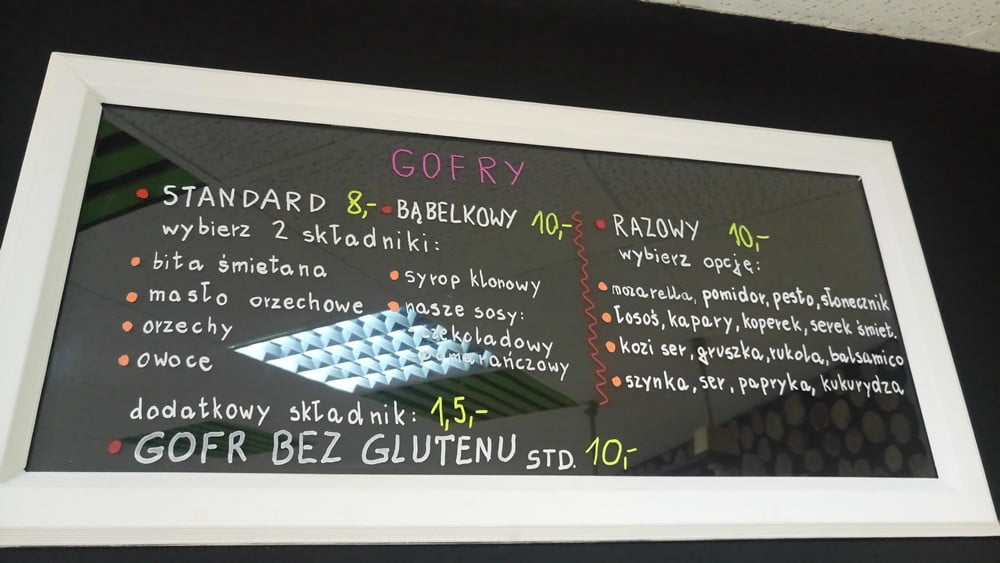 GOFRY
• STANDARD 8,- • BĄBELKOWY 10,-
wybierz 2 składniki:
• bita śmietana
• masło orzechowe
• orzechy
• owoce
• syrop klonowy
• nasze sosy:
czekoladowy
pomarańczowy
dodatkowy składnik: 1,5,-
• GOFR BEZ GLUTENU STD. 10,-
• RAZOWY 10,-
wybierz opcję:
• mozarella, pomidor, pesto, słonecznik
• łosoś, kapary, koperek, serek śmiet.
• kozi ser, gruszka, rukola, balsamico
• szynka, ser, papryka, kukurydza